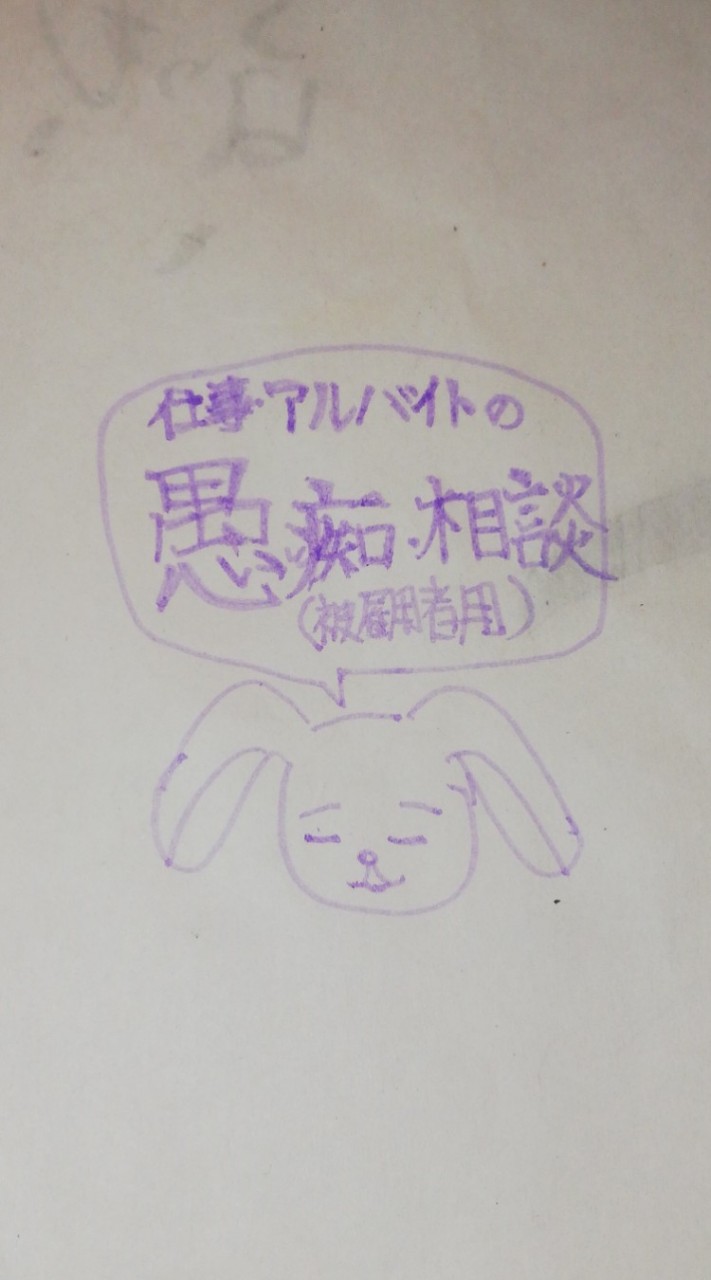 仕事・アルバイトの
愚痴・相談
(被雇用者用)